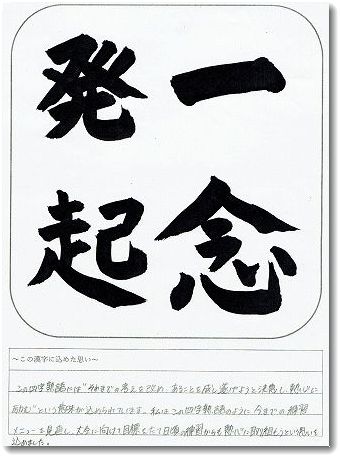 一念
発起
～この漢字に込めた思い～
この四字熟語には"それまでの考えを改め、あることを成し遂げようと決意し、熱心に
励む"という意味が込められています。私はこの四字熟語のように今までの練習
メニューを見直し、大会に向けて目標をたて日頃の練習からも熱心に取り組もうという思いを
込めました。